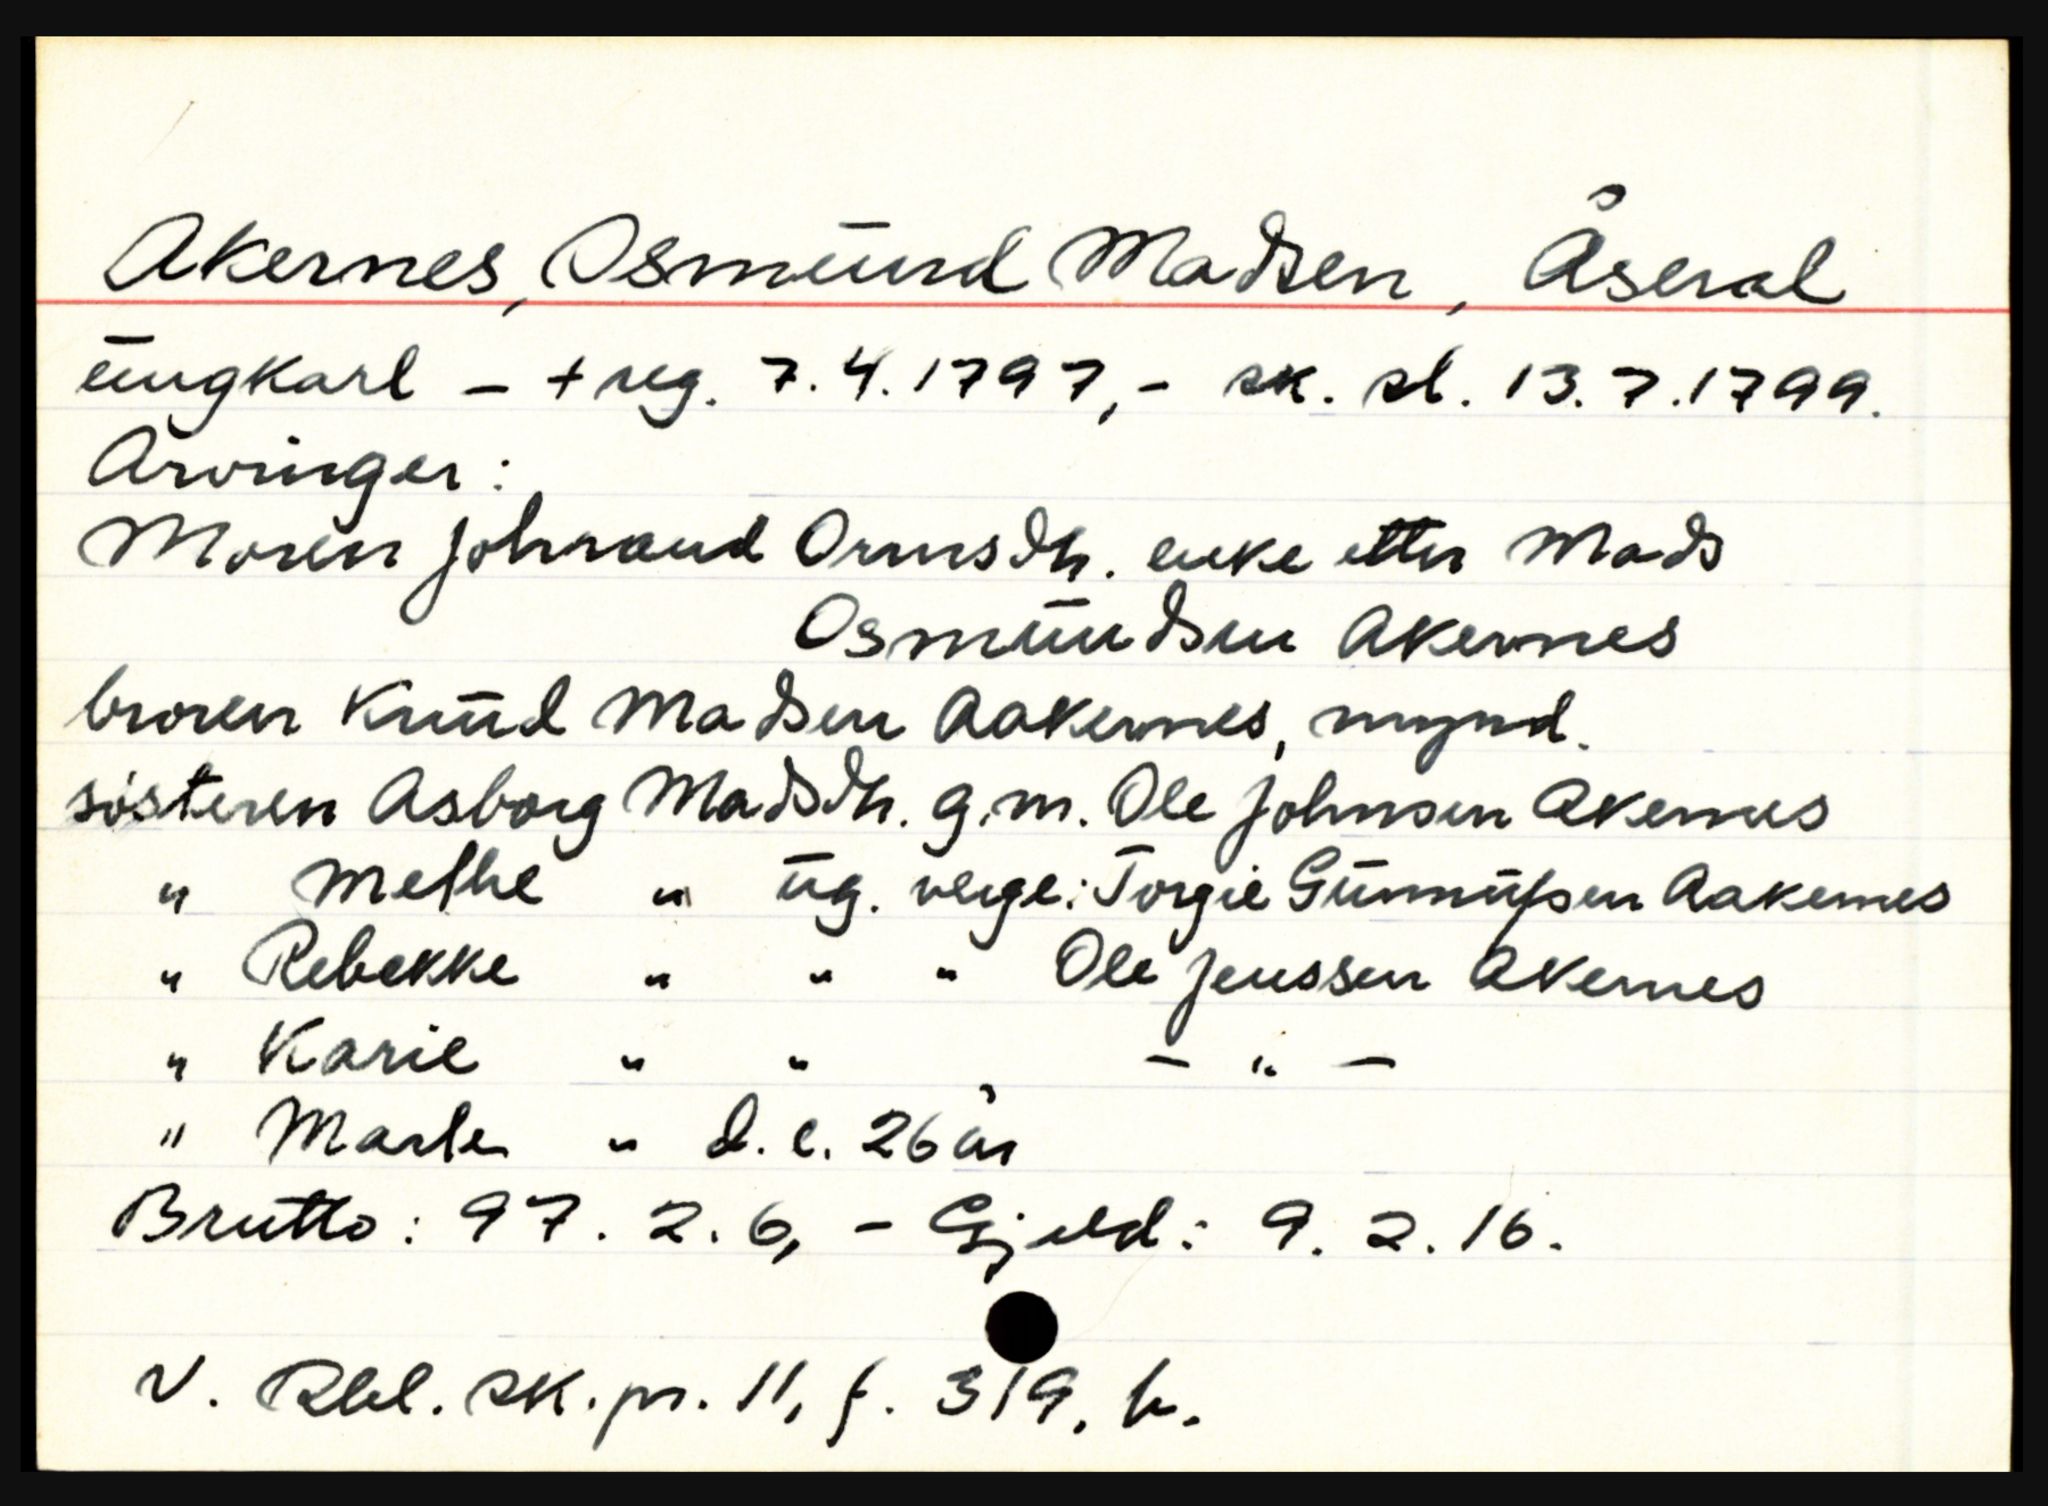 Akernes, Osmūnd Madsen, Åseral
ūngkarl - + reg. 7.4.1797, - sk. sl. 13.7.1799.
Arvinger:
Moren Johnaud Ormsdtr. enke etter Mads
Osmūndsen Akernes
broren Knūd Madsen Aakernes, mynd.
søsteren Asborg Madsdtr. g.m. Ole Johnsen Akernes
" Methe " ūg. verge: Torgie Gūnnūfsen Aakernes
" Rebekke " " " Ole Jenssen Akernes
" Karie " " - " -
" Marte " d.e. 26 år
Brutto: 97. 2. 6, - Gjeld: 9. 2. 16.
V. Rbl. sk.pr. 11, f. 319, b.